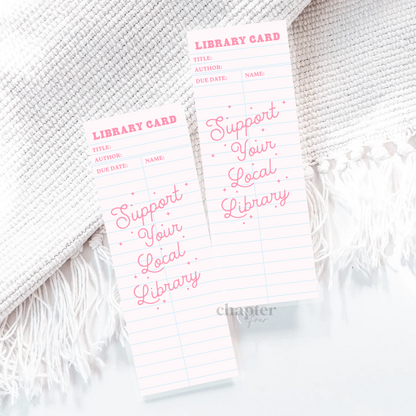 LIBRARY CARD
TITLE:
AUTHOR:
DUE DATE: NAME:
Support
Your
Local
Library
LIBRARY CARD
TITLE:
AUTHOR:
DUE DATE: NAME:
Support
Your
Local
Library
chapter